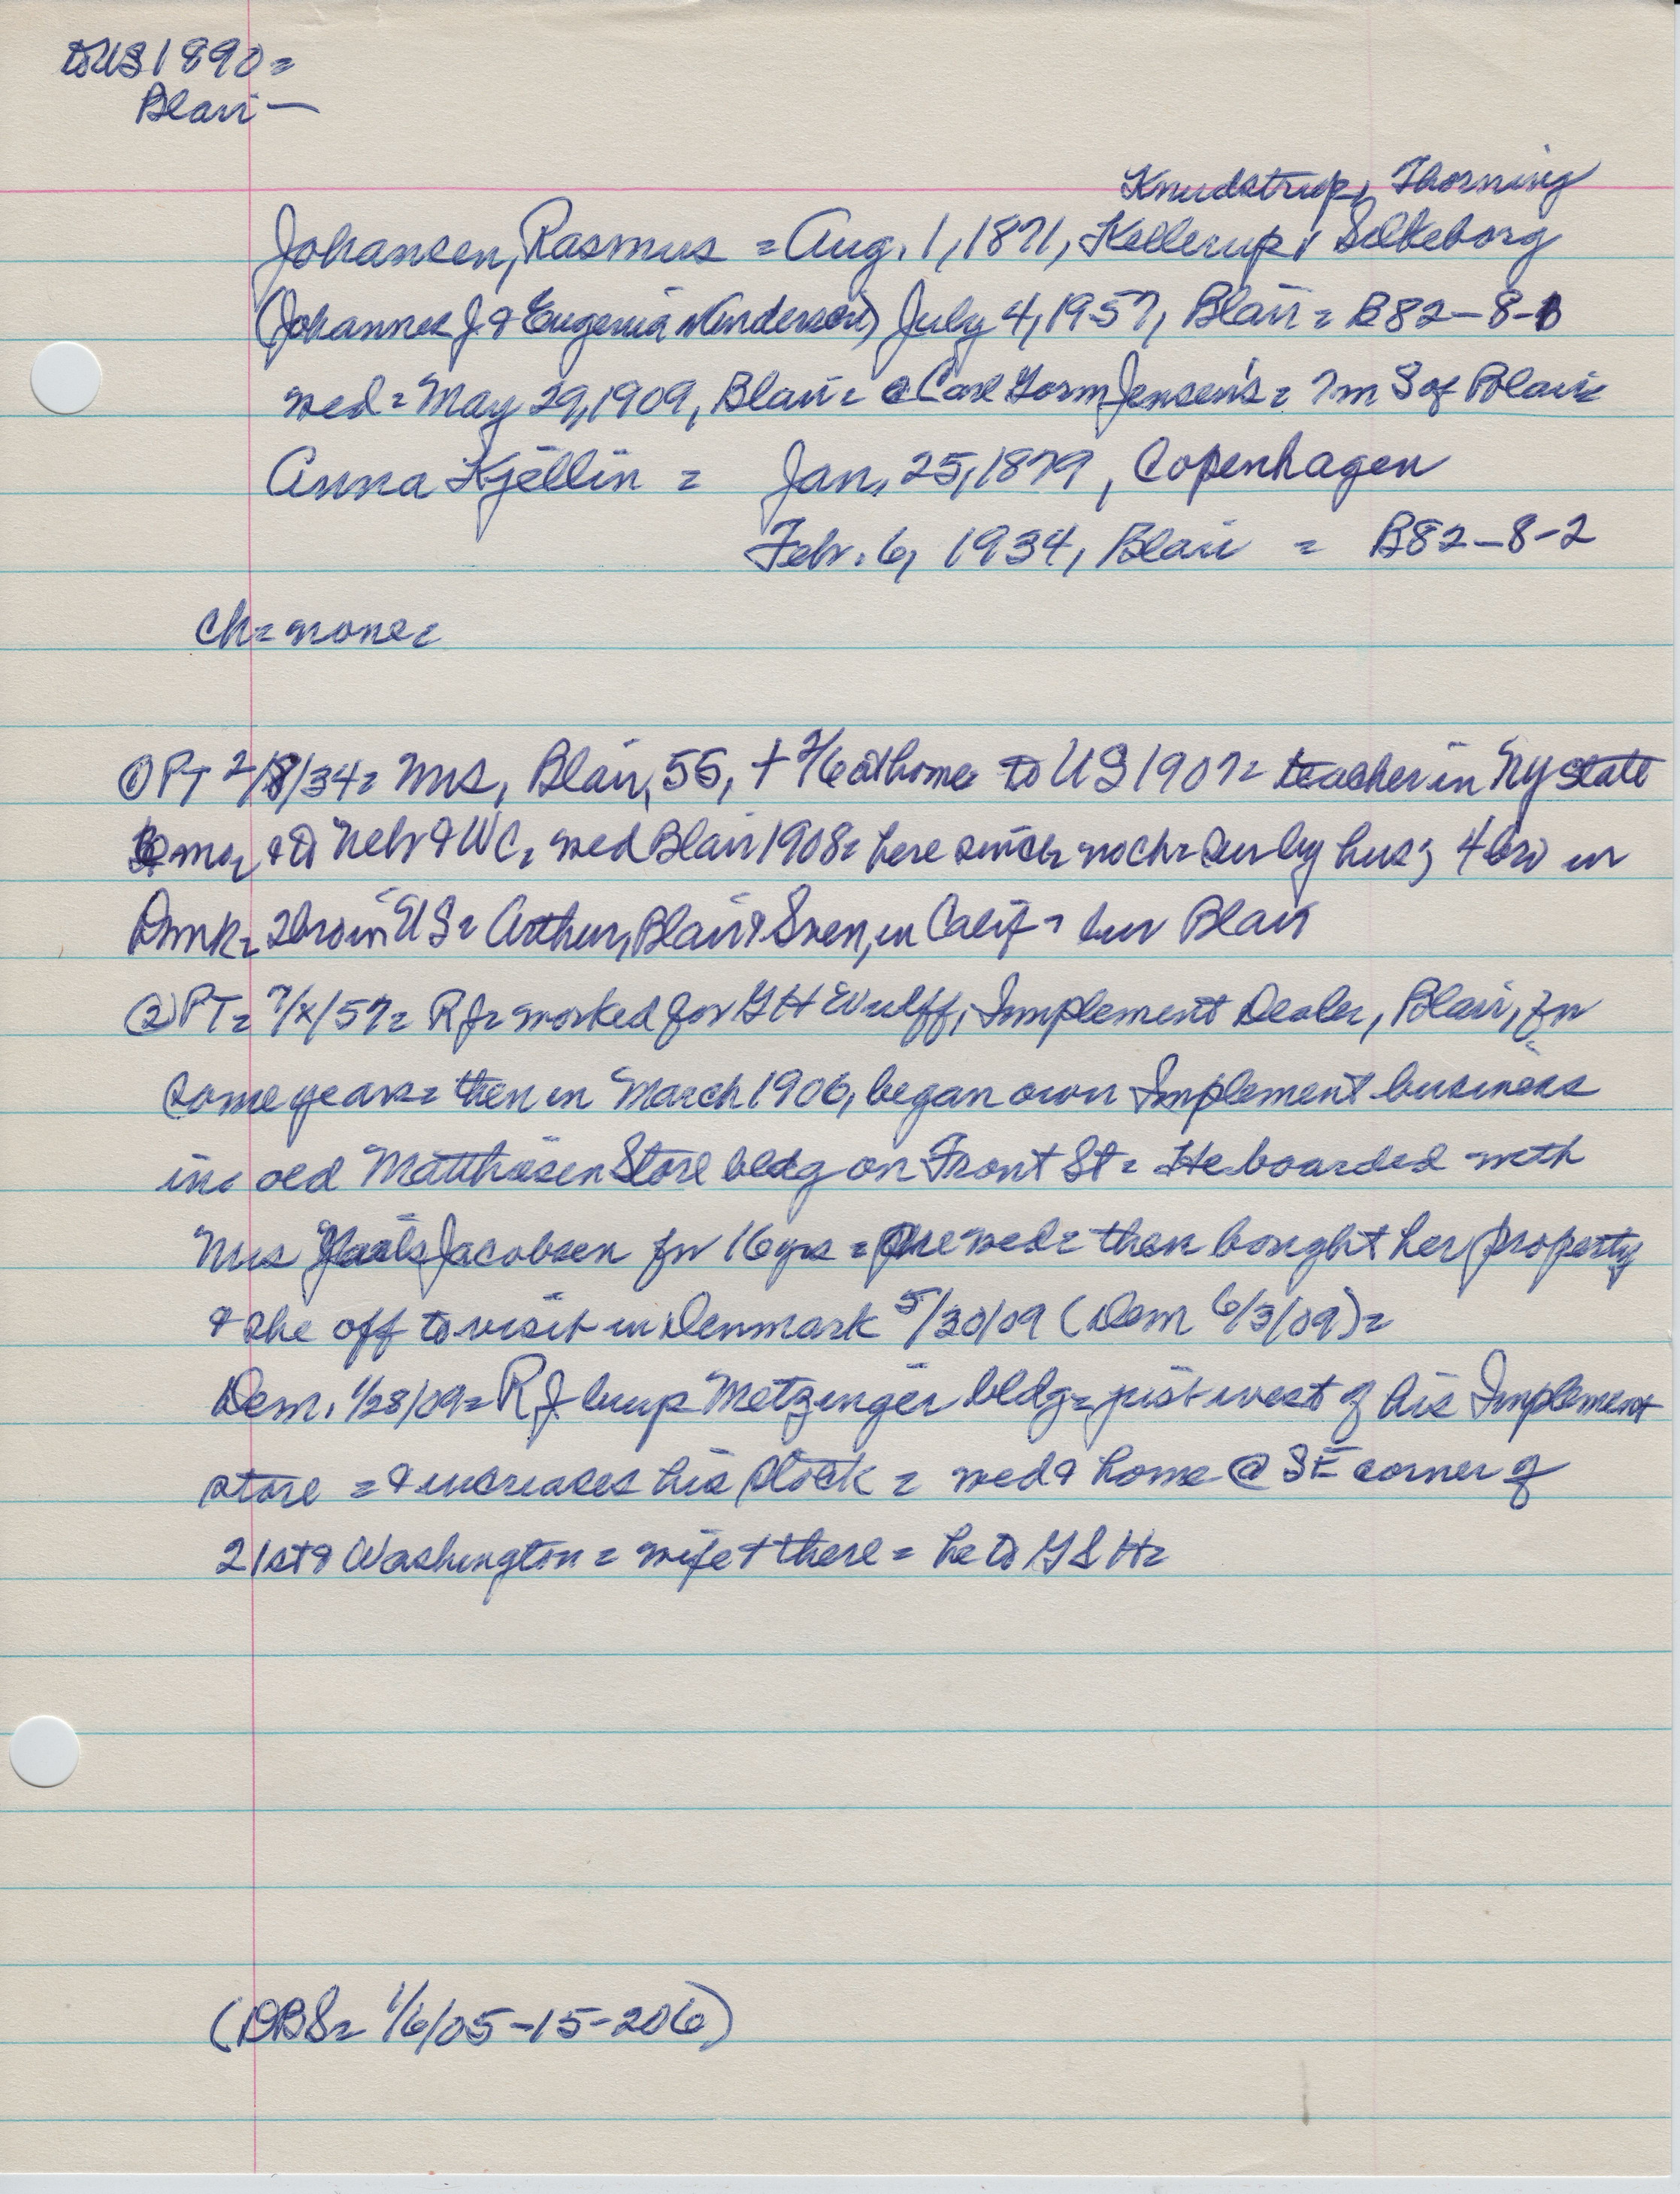 to US 1890 =
Blair —
Knudstrup, Thorning
Johansen, Rasmus = Aug. 1, 1871, Kellerup, Silkeborg
(Johannes J. & Eugenia Anderson) July 4, 1957, Blair = B82-8-1
wed = May 29, 1909, Blair = @ Carl Gorm Jensen's = 7m S of Blair =
Anna Kjellin = Jan. 25, 1879, Copenhagen
Febr. 6, 1934, Blair = B82-8-2
ch = none =
① PT 2/8/34 = Mrs, Blair, 55, + 2/6 at home to US 1907 = teacher in NY state
& to Nebr & WC, wed Blair 1908 = here since = no ch = sur by hus; 4 bro in
Dmk = 2 bro in US = Arthur, Blair & Sven, in Calif = bur Blair
② PT = 7/x/57 = RJ = worked for GH Wulff, Implement Dealer, Blair, for
some years = then in March 1906, began own Implement business
in old Matthiesen Store bldg on Front St = He boarded with
Mrs Jacobsen for 16 yrs = wed = then bought her property
& she off to visit in Denmark 5/30/09 (Dem 6/3/09) =
Dem. 1/28/09 = RJ buys Metzinger bldg = just west of his Implement
store = & increases his stock = wed & home @ SE corner of
21st & Washington = wife + there = he to GSH =
(DBS = 1/6/05-15-206)